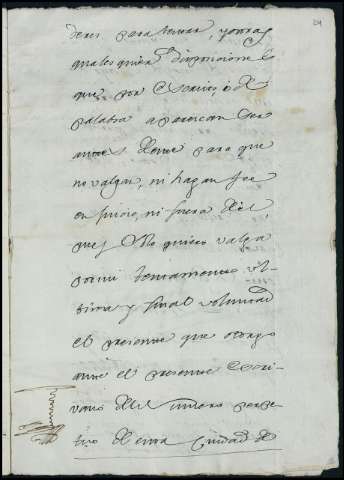 29
deres para testar, y otras
qualesquier disposiciones
que por escrito, ó de
palabra aparescan
antes de este para que
no valgan, ni hagan fee
en juicio, ni fuera dèl,
pues solo quiero valga
por mi testamento ul-
tima y final voluntad
el presente que otorgo
ante el presente Escri-
vano del numero perpe-
tuo de esta Ciudad de